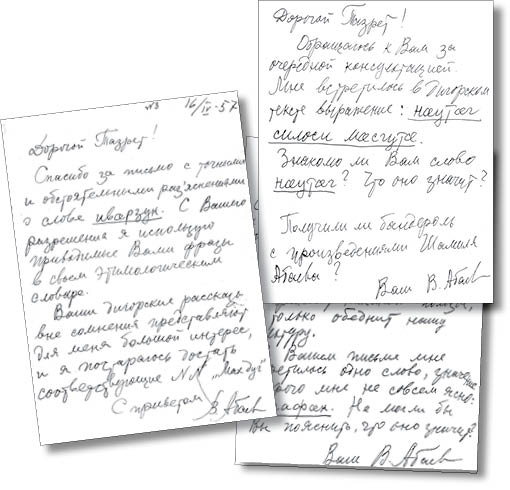 №3 16/IV-57
Дорогой Тазрет!
Спасибо за письмо с точными
и обстоятельными раз'яснениями
о слове иварзун. С Вашего
разрешения я использую
приводимые Вами фразы
в своем Этимологическом
словаре.
Ваши дигорские рассказы
вне сомнения представляют
для меня большой интерес,
и я постараюсь достать
соответствующие NN „Мах дуг"
С приветом В. Абаев
Дорогой Тазрет!
Обращаюсь к Вам за
очередной консультацией.
Мне встретилось в дигорском
тексте выражение: наутӕг
силоси масгутӕ.
Знакомо ли Вам слово
наутӕг? Что оно значит?
Получили ли бандероль
с произведениями Шамиля
Абаева?
Ваш В. Абаев
только обеднит нашу
Вашем письме мне
одно слово, значение
мне не совсем ясно:
Не могли бы
Вы пояснить, что оно значит?
Ваш В. Абаев